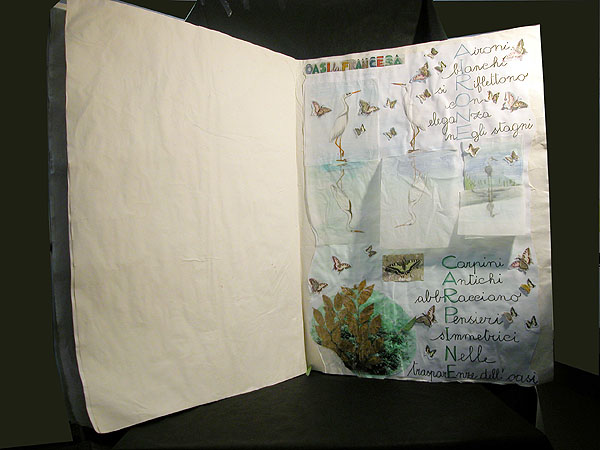 OASI la FRANCESA
Aironi
bIanchi
si Riflettono
cOn
elegaNza
nEgli stagni
Carpini
Antichi
abbRacciano
Pensieri
sImmetrici
Nelle
trasparEnze dell' oasi